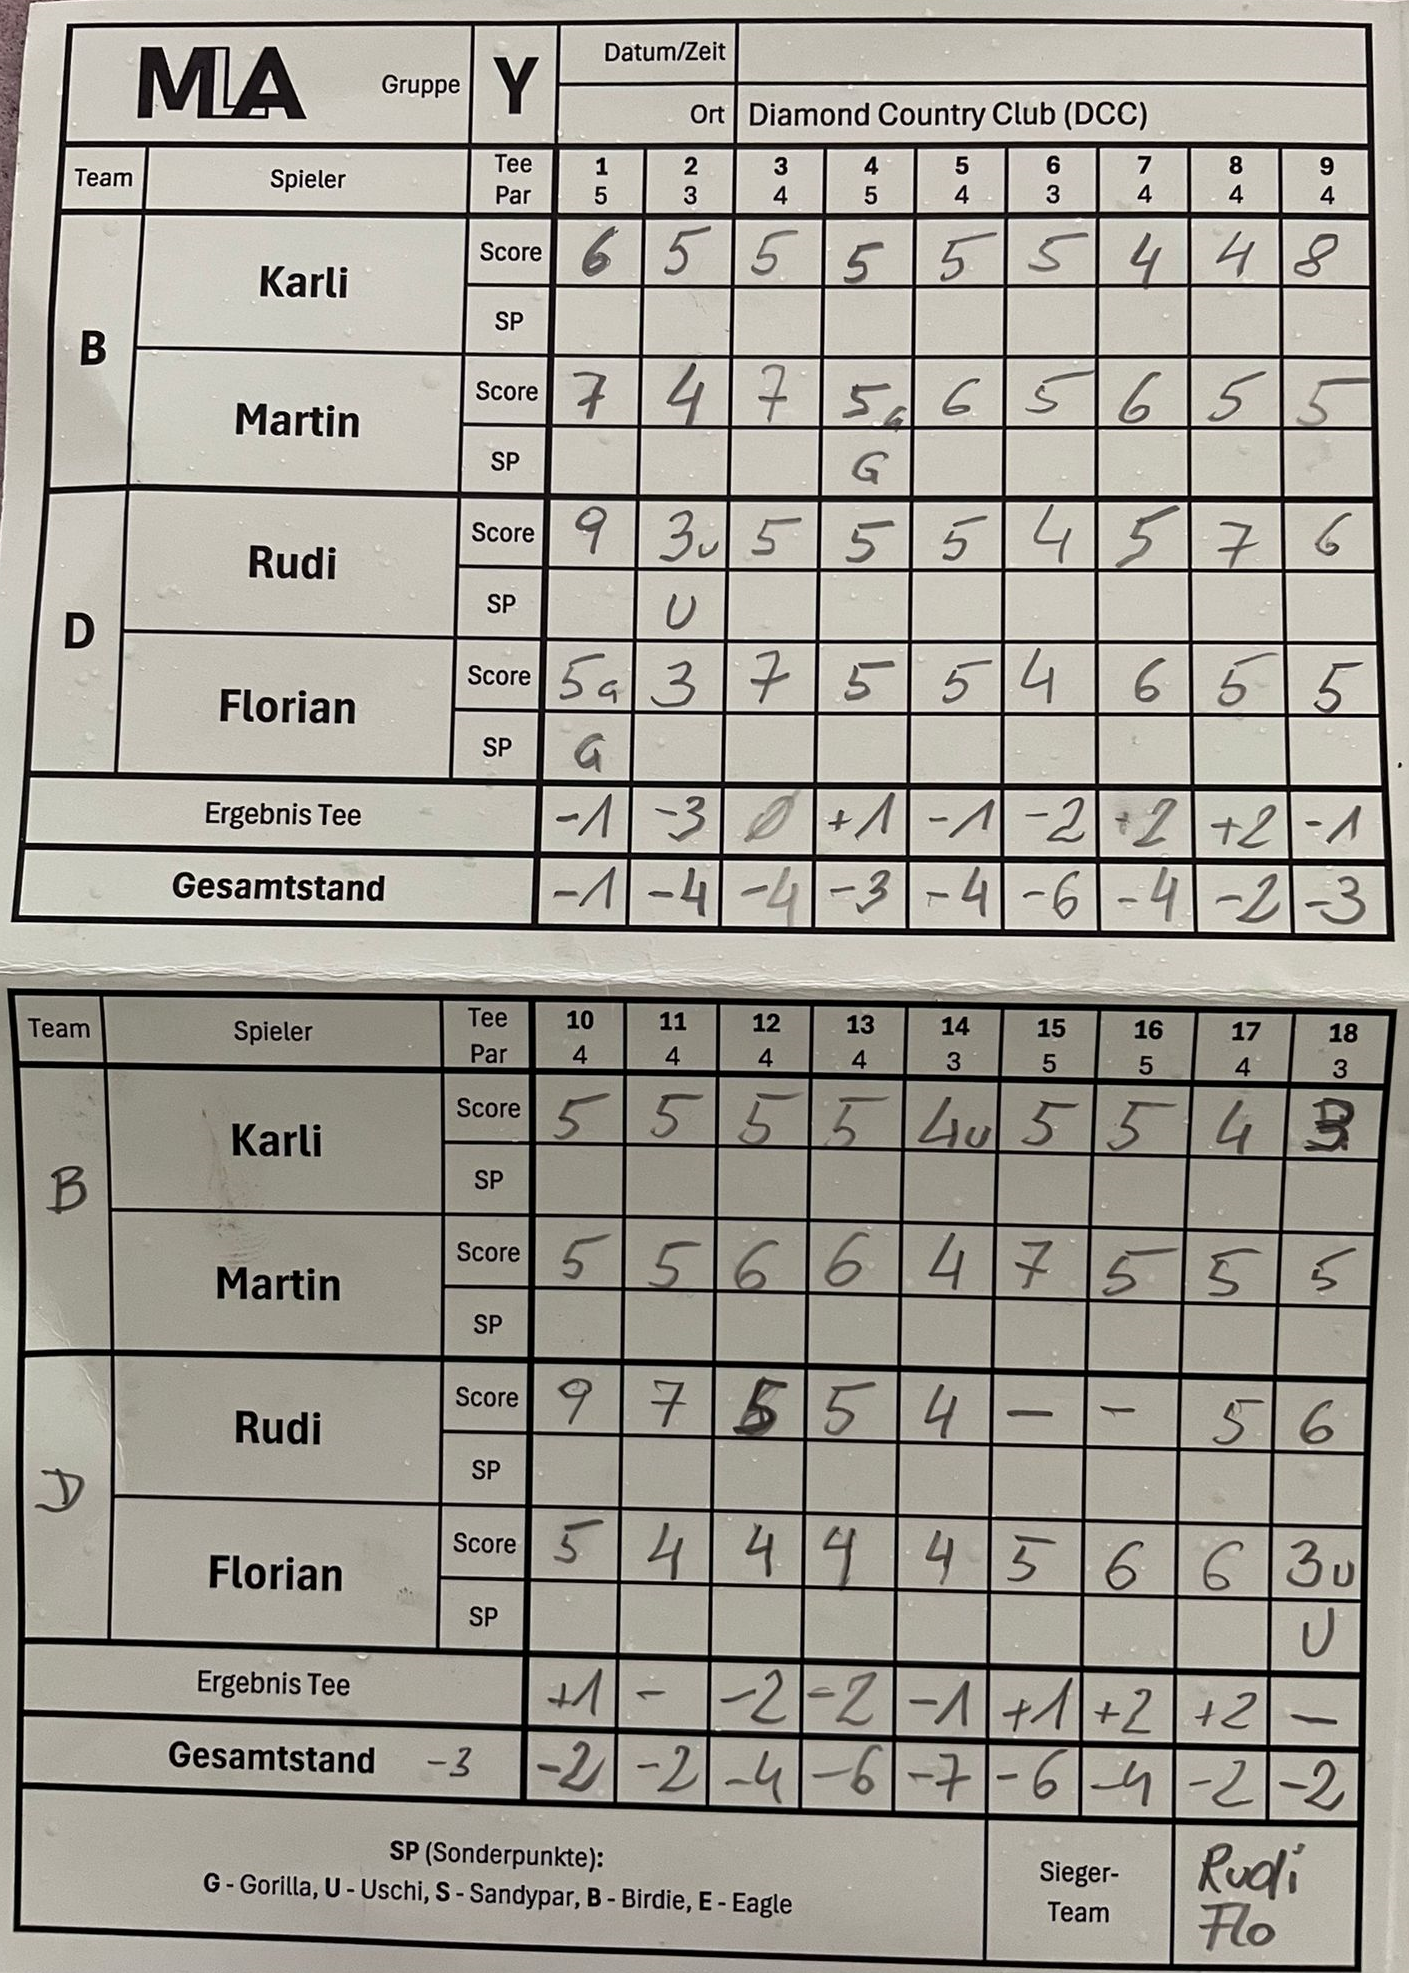 MLA Gruppe Y Datum/Zeit
Ort Diamond Country Club (DCC)
Team Spieler Tee 1 2 3 4 5 6 7 8 9
Par 5 3 4 5 4 3 4 4 4
B Karli Score 6 5 5 5 5 5 4 4 8
SP
Martin Score 7 4 7 5G 6 5 6 5 5
SP G
D Rudi Score 9 3U 5 5 5 4 5 7 6
SP U
Florian Score 5G 3 7 5 5 4 6 5 5
SP G
Ergebnis Tee -1 -3 Ø +1 -1 -2 +2 +2 -1
Gesamtstand -1 -4 -4 -3 -4 -6 -4 -2 -3
Team Spieler Tee 10 11 12 13 14 15 16 17 18
Par 4 4 4 4 3 5 5 4 3
B Karli Score 5 5 5 5 4U 5 5 4 3
SP
Martin Score 5 5 6 6 4 7 5 5 5
SP
D Rudi Score 9 7 5 5 4 - - 5 6
SP
Florian Score 5 4 4 4 4 5 6 6 3U
SP U
Ergebnis Tee +1 - -2 -2 -1 +1 +2 +2 -
Gesamtstand -3 -2 -2 -4 -6 -7 -6 -4 -2 -2
SP (Sonderpunkte):
G - Gorilla, U - Uschi, S - Sandypar, B - Birdie, E - Eagle
Sieger-
Team
Rudi
Flo